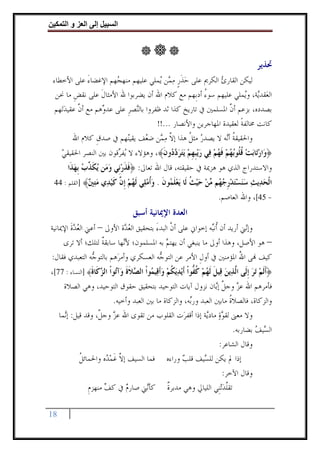 السبيل إلى العز و التمكين
تحذير
ليكن القارئُ الكريم على حَذَرٍ ممَّن يُملي عليهم منهجُهم الإغضاءَ على الأخطاء
العَقَديَّة، ويُملي عليهم سوءُ أدبهم مع كلام الله أن يضربوا له الأمثالَ على نقض ما نحن
بصدده، بزعم أنَّ المسلمين في تاريخ كذا قد ظفروا بالنَّصر على عدوِّهم مع أنَّ عقيدتهم
كانت مخالفةً لعقيدة المهاجرين والأنصار ...!!
والحقيقةُ أنَّه لا يصدرُ مثلُ هذا إلاَّ ممَّن ضَعُفَ يقينُهم في صدق كلام الله
﴿وَارْتَابَتْ قُلُوبُهُمْ فَهُمْ فِي رَيْبِهِمْ يَتَرَدَّدُونَ﴾، وهؤلاء لا يُفرِّقون بين النصر الحقيقيِّ
والاستدراج الذي هو هزيمة في حقيقته، قال الله تعالى: ﴿فَذَرْنِي وَمَن يُكَذِّبُ بِهَذَا
الْحَدِيثِ سَنَسْتَدْرِجُهُم مِّنْ حَيْثُ لاَ يَعْلَمُونَ . وَأُمْلِي لَهُمْ إِنَّ كَيْدِي مَتِينٌ﴾ [القلم: 44
- 45]، والله العاصم.
العدة الإيمانية أسبق
وإنَّني أريد أن أُنبِّه إخواني على أنَّ البدءَ بتحقيق العُدَّة الأولى – أعني العُدَّةَ الإيمانيَّة
– هو الأصل، وهذا أولى ما ينبغي أن يهتمَّ به المسلمون؛ لأنَّها سابقةٌ لتلك؛ ألا ترى
كيف نهى اللهُ المؤمنين في أول الأمر عن التوجُّه العسكري وأمرهم بالتوجُّه التعبدي فقال:
﴿أَلَمْ تَرَ إِلَى الَّذِينَ قِيلَ لَهُمْ كُفُّوا أَيْدِيَكُمْ وَأَقِيمُوا الصَّلاَةَ وَآتُوا الزَّكَاةَ﴾ [النساء : 77]،
فأمرهم الله عزَّ وجلَّ إبَّان نزول آيات التوحيد بتحقيق حقوق التوحيد، وهي الصلاة
والزكاة، فالصلاةُ مابين العبد وربِّه، والزكاة ما بين العبد وأخيه.
ولا معنى لقوَّةٍ ماديَّةٍ إذا أقفرَت القلوب من تقوى الله عزَّ وجلَّ، وقد قيل: إنَّما
السَّيفُ بضاربه.
وقال الشاعر:
إذا لم يكن للسَّيف قلبٌ وراءه	فما السيف إلاَّ غمْدُه والحمائلُ
وقال الآخر:
تقلَّدتْني الليالي وهي مدبرةٌ	كأنَّني صارمٌ في كفِّ منهزمٍ
18